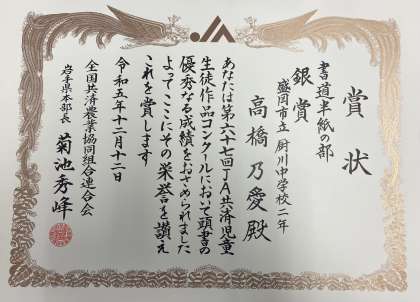 賞状
書道半紙の部
銀賞
盛岡市立 厨川中学校二年
高橋乃愛殿
あなたは第六十七回JA共済児童
生徒作品コンクールにおいて頭書の
優秀なる成績をおさめられました
よってここにその栄誉を讃え
これを賞します
令和五年十二月十二日
全国共済農業協同組合連合会
岩手県本部長 菊池秀峰